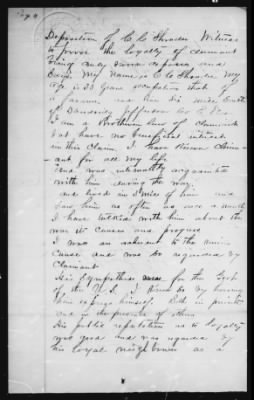 Deposition of C C Shrader Witness
to prove the loyalty of claimant
Being duly sworn deposes and
Says My Name is C C Shrader My
age is 33 years occupation that of
a farmer and live Six miles South
of Dandridge Jefferson Co E Tenn
I am a Brother in law of Claimant
but have no beneficial interest
in this Claim I have Known Claim-
-ant for all my life
and was intimately acquainted
with him during the war
and lived miles of him and
saw him as often as once a month
I have talked with him about the
war its Causes and progress
I was an adherent to the Union
Cause and was so regarded by
Claimant
His Sympathies were for the Govt
of the U.S. I know so by hearing
him express himself Both in private
and in the presence of others
His public reputation as to loyalty
was good and was regarded by
his loyal neighbours as a